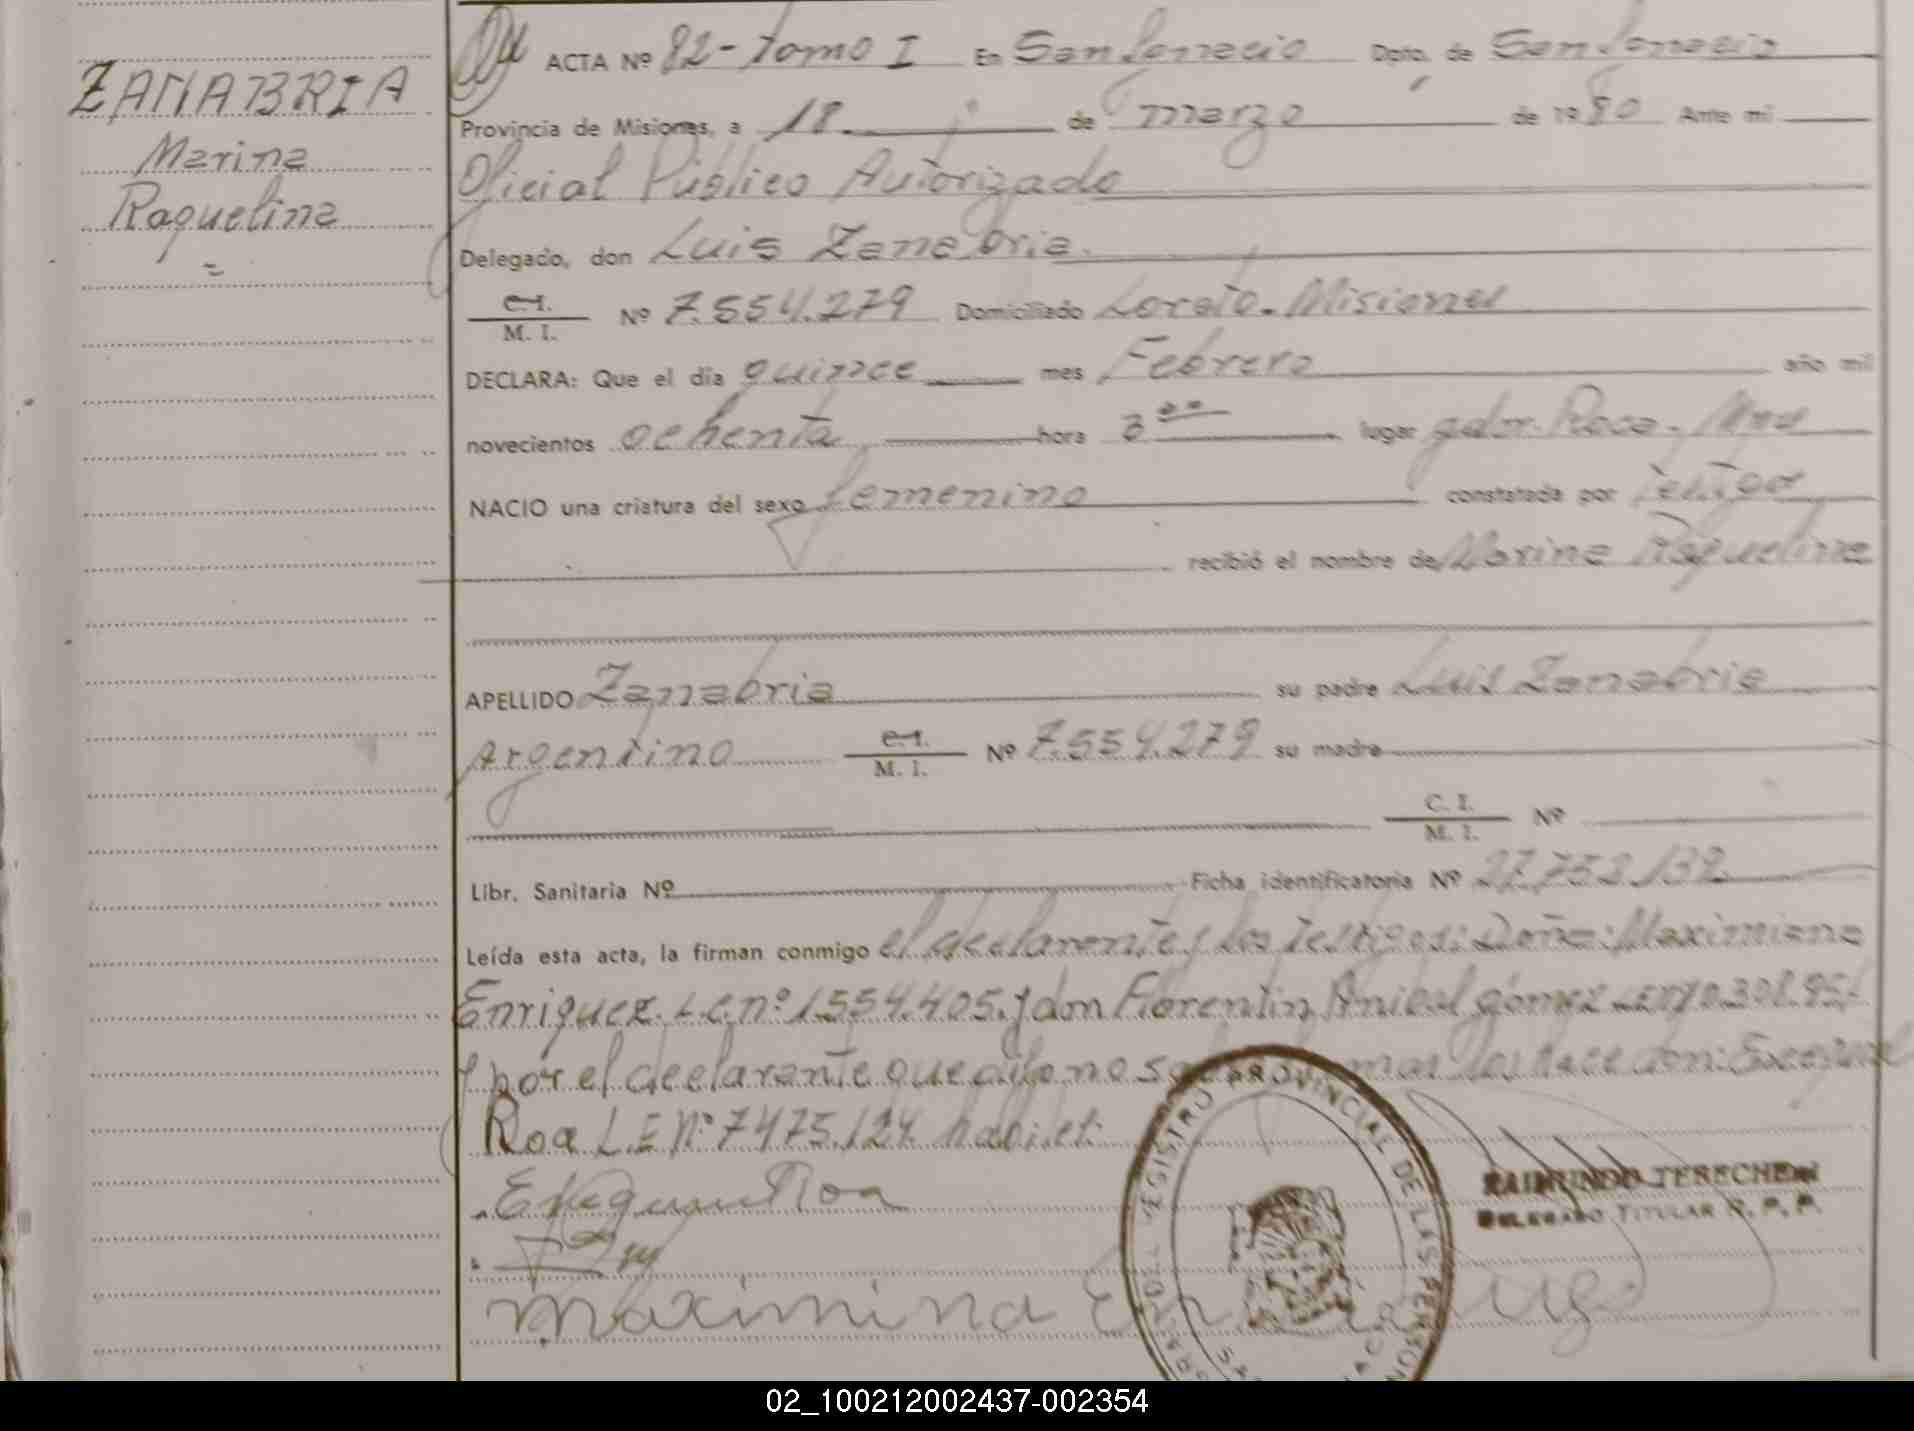 ZANABRIA
Marina
Raquelina
ACTA Nº 82-tomo I En San Ignacio Dpto. de San Ignacio
Provincia de Misiones, a 18 de marzo de 1980 Ante mi
Oficial Público Autorizado
Delegado, don Luis Zanabria.
C.I. M. I. Nº 7.554.279 Domiciliado Loreto. Misiones
DECLARA: Que el día quince mes Febrero año mil
novecientos ochenta hora 3 oo lugar gdor. Roca. Mnes
NACIO una criatura del sexo femenino constatada por testigos
recibió el nombre de Marina Raquelina
APELLIDO Zanabria su padre Luis Zanabria
Argentino C.I. M. I. Nº 7.554.279 su madre
C. I. M. I. Nº
Libr. Sanitaria Nº Ficha identificatoria Nº 27.752.132
Leída esta acta, la firman conmigo el declarante y los testigos: Doña: Maximiana
Enriquez. L.C.nº 1.554.405. y don Florentin Anibal gómez
y por el declarante que dijo no los hace don: Exequiel
Roa L.E Nº 7475.124
Roa
Maximina
REGISTRO PROVINCIAL DE LAS PERSON
RAIMUNDO TERECHEN
DELEGADO TITULAR R. P. P.
02_100212002437-002354